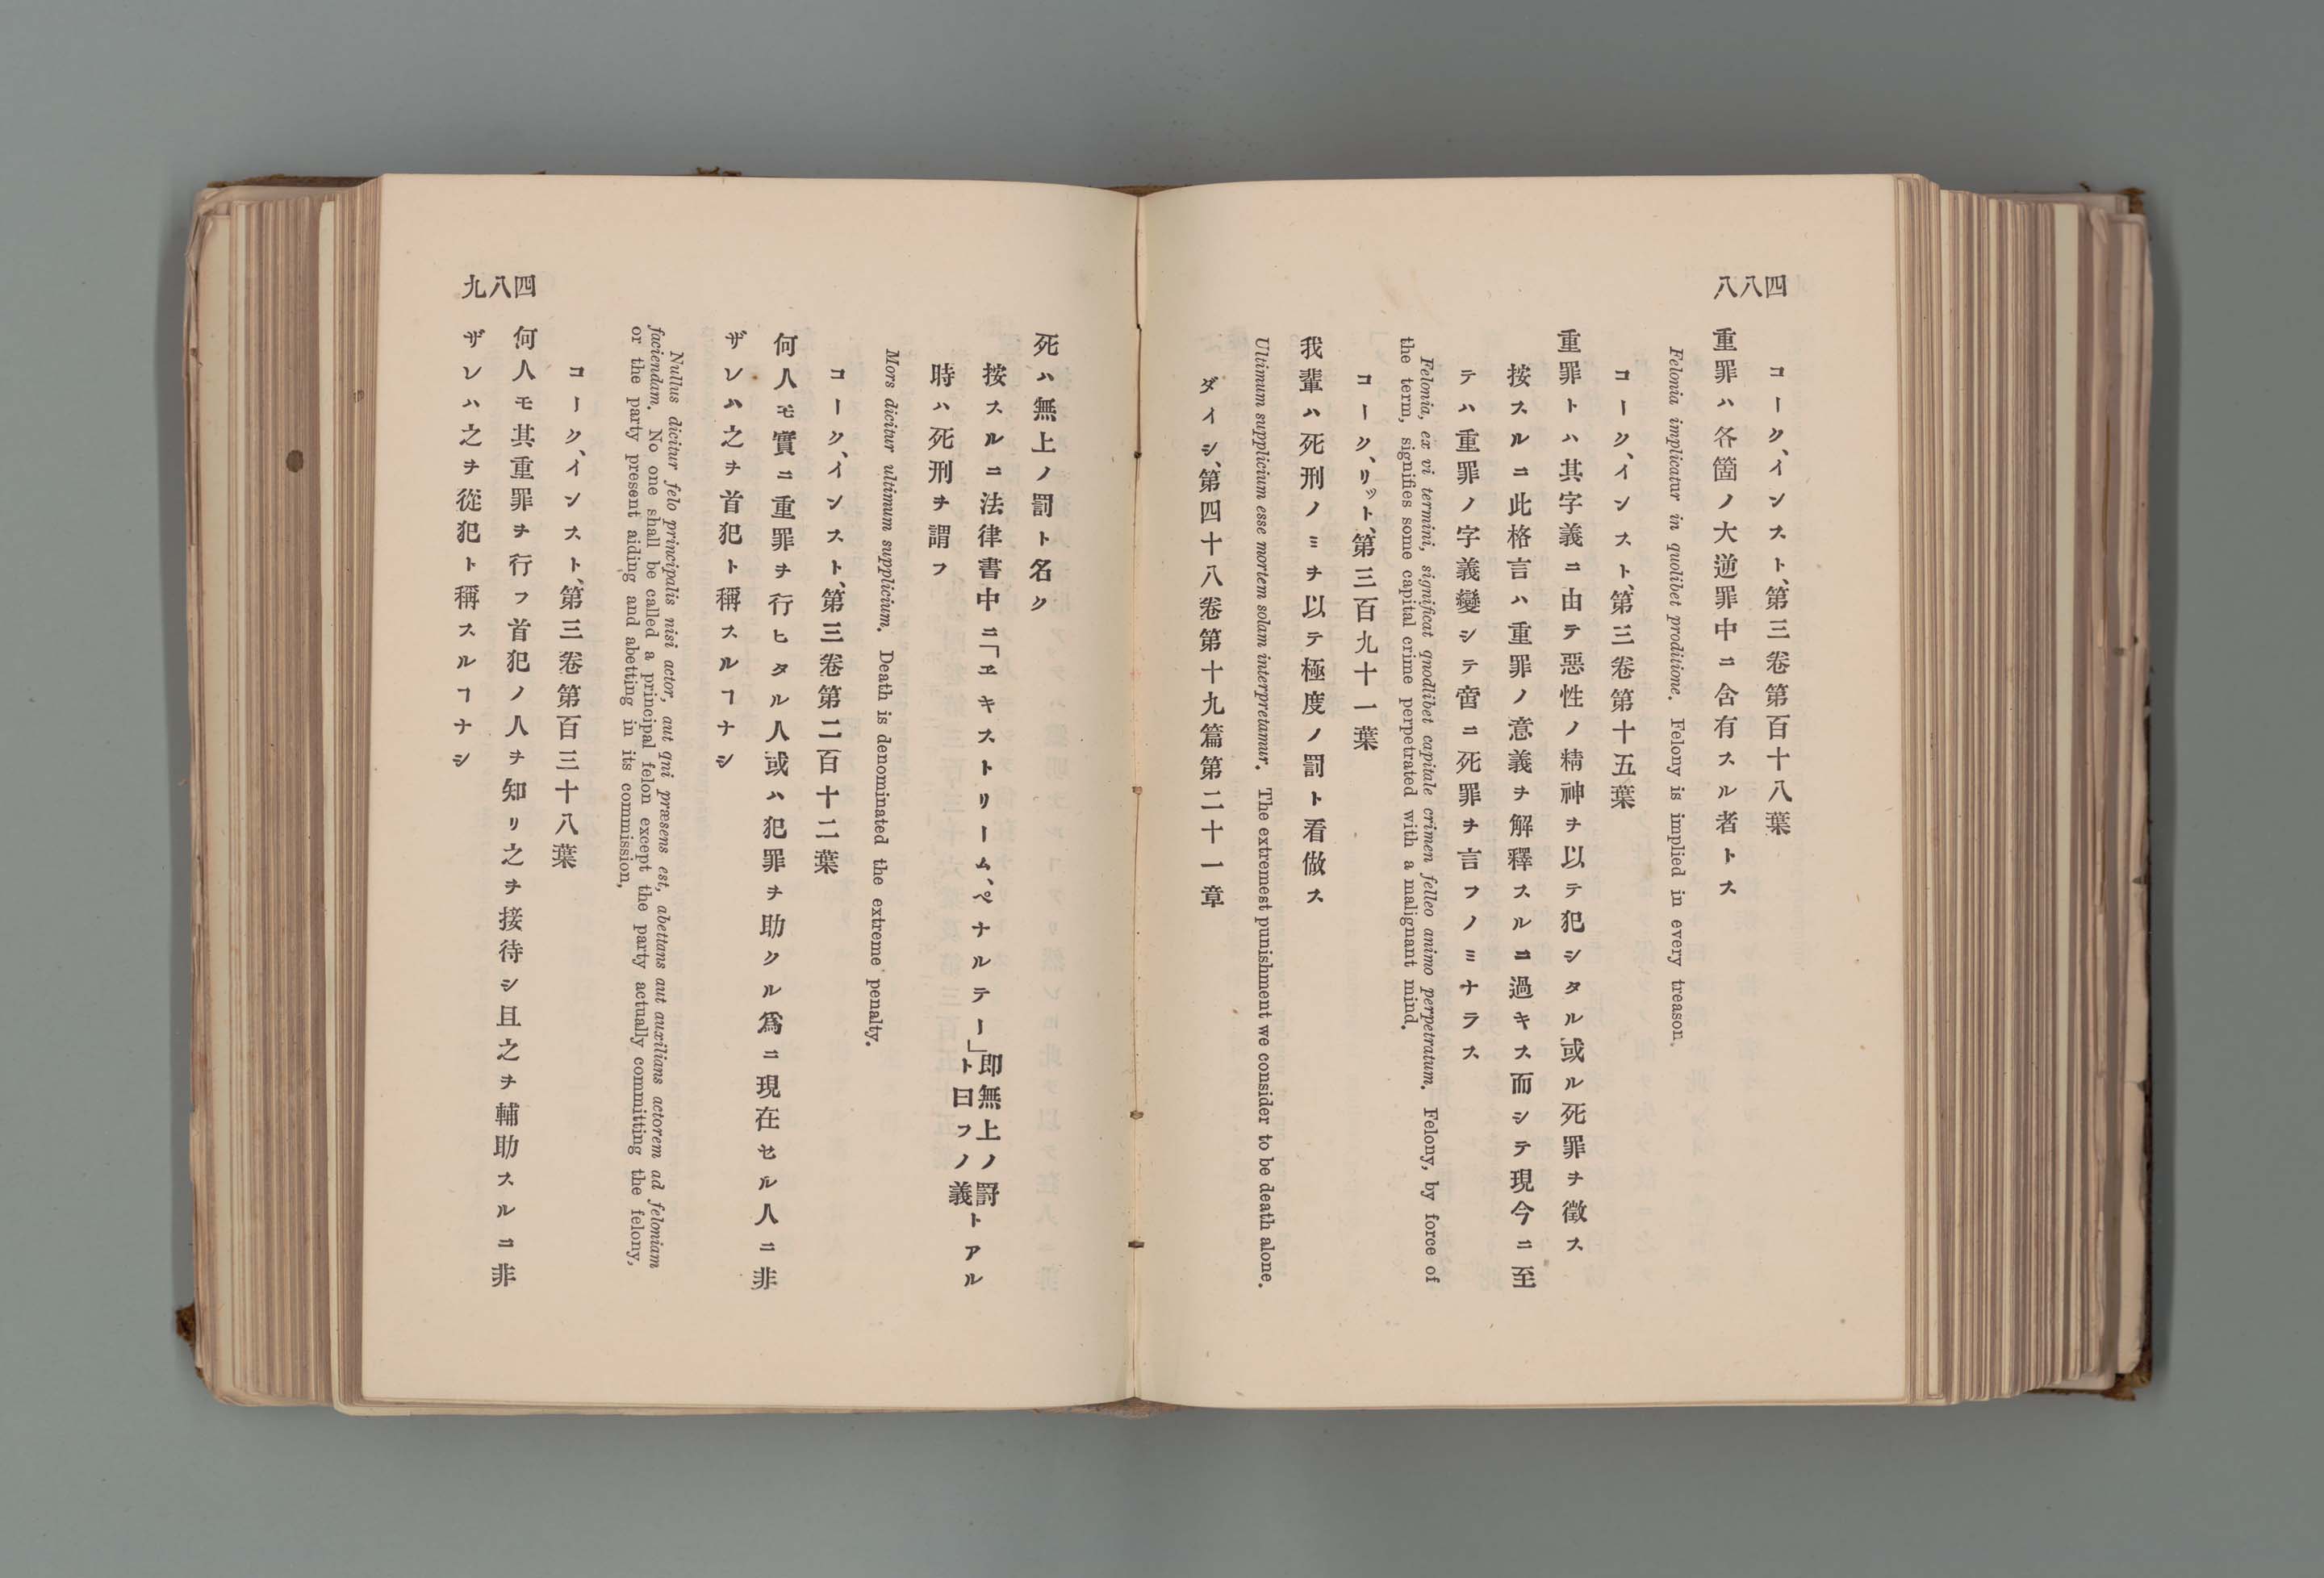 四八八
コーク、インスト、第三卷第百十八葉
重罪ハ各箇ノ大逆罪中ニ含有スル者トス
Felonia implicatur in quolibet proditione. Felony is implied in every treason.
コーク、インスト、第三卷第十五葉
重罪トハ其字義ニ由テ惡性ノ精神ヲ以テ犯シタル或ル死罪ヲ徵ス
按スルニ此格言ハ重罪ノ意義ヲ解釋スルニ過キス而シテ現今ニ至
テハ重罪ノ字義變シテ啻ニ死罪ヲ言フノミナラス
Felonia, ex vi termini, significat qnodlibet capitale crimen felleo animo perpetratum. Felony, by force of
the term, signifies some capital crime perpetrated with a malignant mind.
コーク、リット、第三百九十一葉
我輩ハ死刑ノミヲ以テ極度ノ罰ト看傚ス
Ultimum supplicium esse mortem solam interpretamur. The extremest punishment we consider to be death alone.
ダイシ、第四十八卷第十九篇第二十一章
四八九
死ハ無上ノ罰ト名ク
按スルニ法律書中ニ「ヱキストリーム、ペナルテー」即無上ノ罸ト曰フノ義トアル
時ハ死刑ヲ謂フ
Mors dicitur ultimum supplicium. Death is denominated the extreme penalty.
コーク、インスト、第三卷第二百十二葉
何人モ實ニ重罪ヲ行ヒタル人或ハ犯罪ヲ助クル爲ニ現在セル人ニ非
ザレハ之ヲ首犯ト稱スルヿナシ
Nullus dicitur felo principalis nisi actor, aut qni præsens est, abettans aut auxilians actorem ad feloniam
faciendam. No one shall be called a principal felon except the party actually committing the felony,
or the party present aiding and abetting in its commission,
コーク、インスト、第三卷第百三十八葉
何人モ其重罪ヲ行フ首犯ノ人ヲ知リ之ヲ接待シ且之ヲ輔助スルニ非
ザレハ之ヲ從犯ト稱スルヿナシ